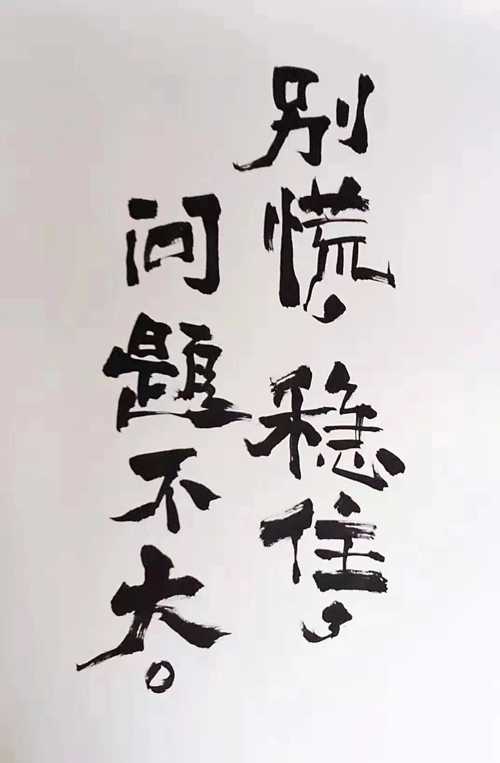 别慌，稳住，
问题不大。